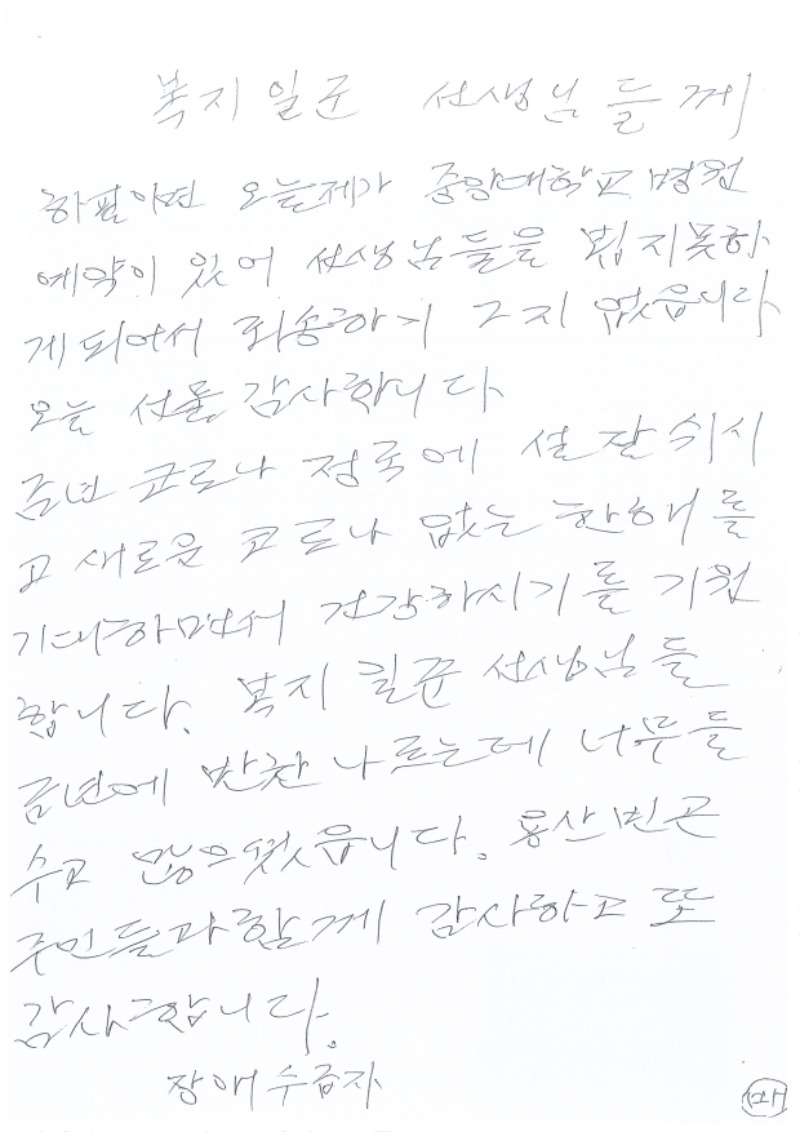 복지일군 선생님들께
하필이면 오늘제가 중앙대학교 병원
예약이 있어 선생님들을 뵙지못하
게되어서 죄송하기 그지 없읍니다
오늘 선물 감사합니다.
금년 코로나 정국에 설 잘 쉬시
고 새로운 코로나 없는 한해를
기대하면서 건강하시기를 기원
합니다. 복지 일꾼 선생님들
금년에 반찬 나르는데 너무들
수고 많으셨읍니다. 용산빈곤
주민들과함께 감사하고 또
감사합니다.
장애수급자